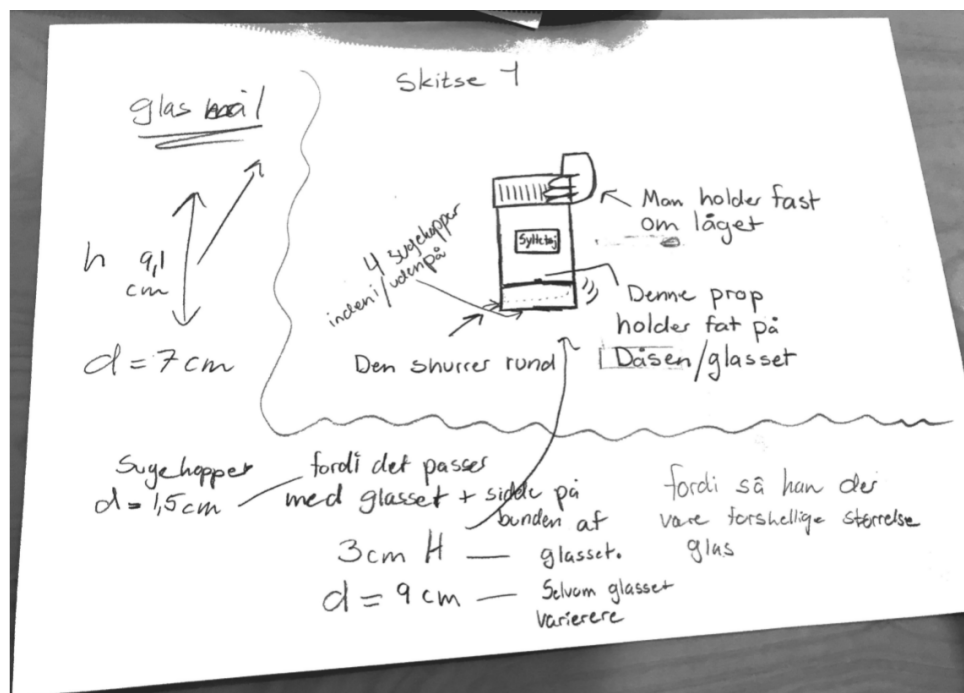 Skitse 1
glas mål
h 9,1
cm
d = 7 cm
4 sugekopper
indeni/udenpå
Syltetøj
Man holder fast
om låget
Denne prop
holder fat på
Dåsen/glasset
Den snurrer rund
Sugekopper
d = 1,5cm
fordi det passer
med glasset + sidde på
bunden af
glasset.
3cm H
d = 9 cm
Selvom glasset
varierere
fordi så kan der
vare forskellige størrelse
glas